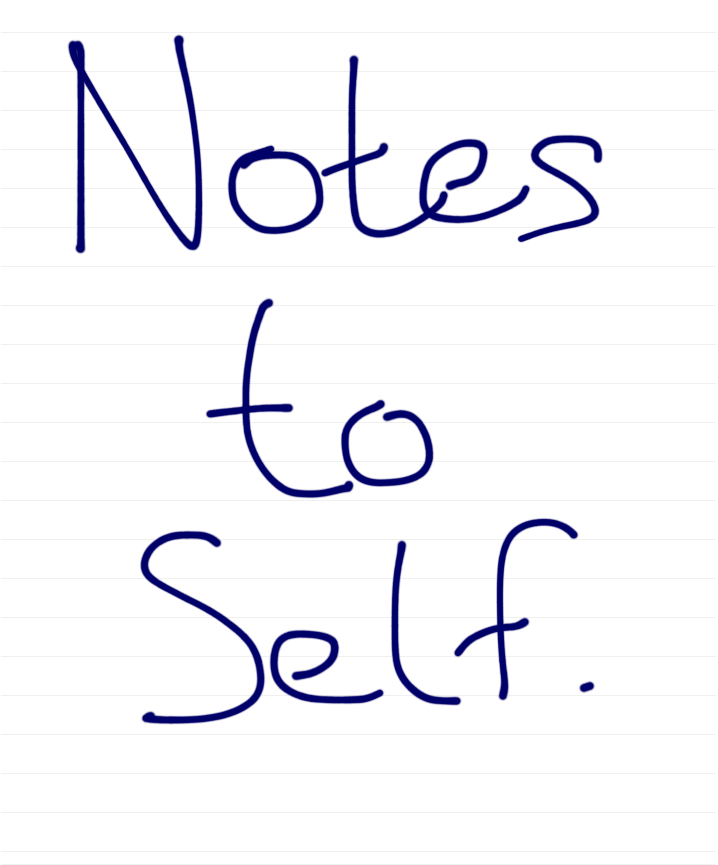 Notes
to
Self.